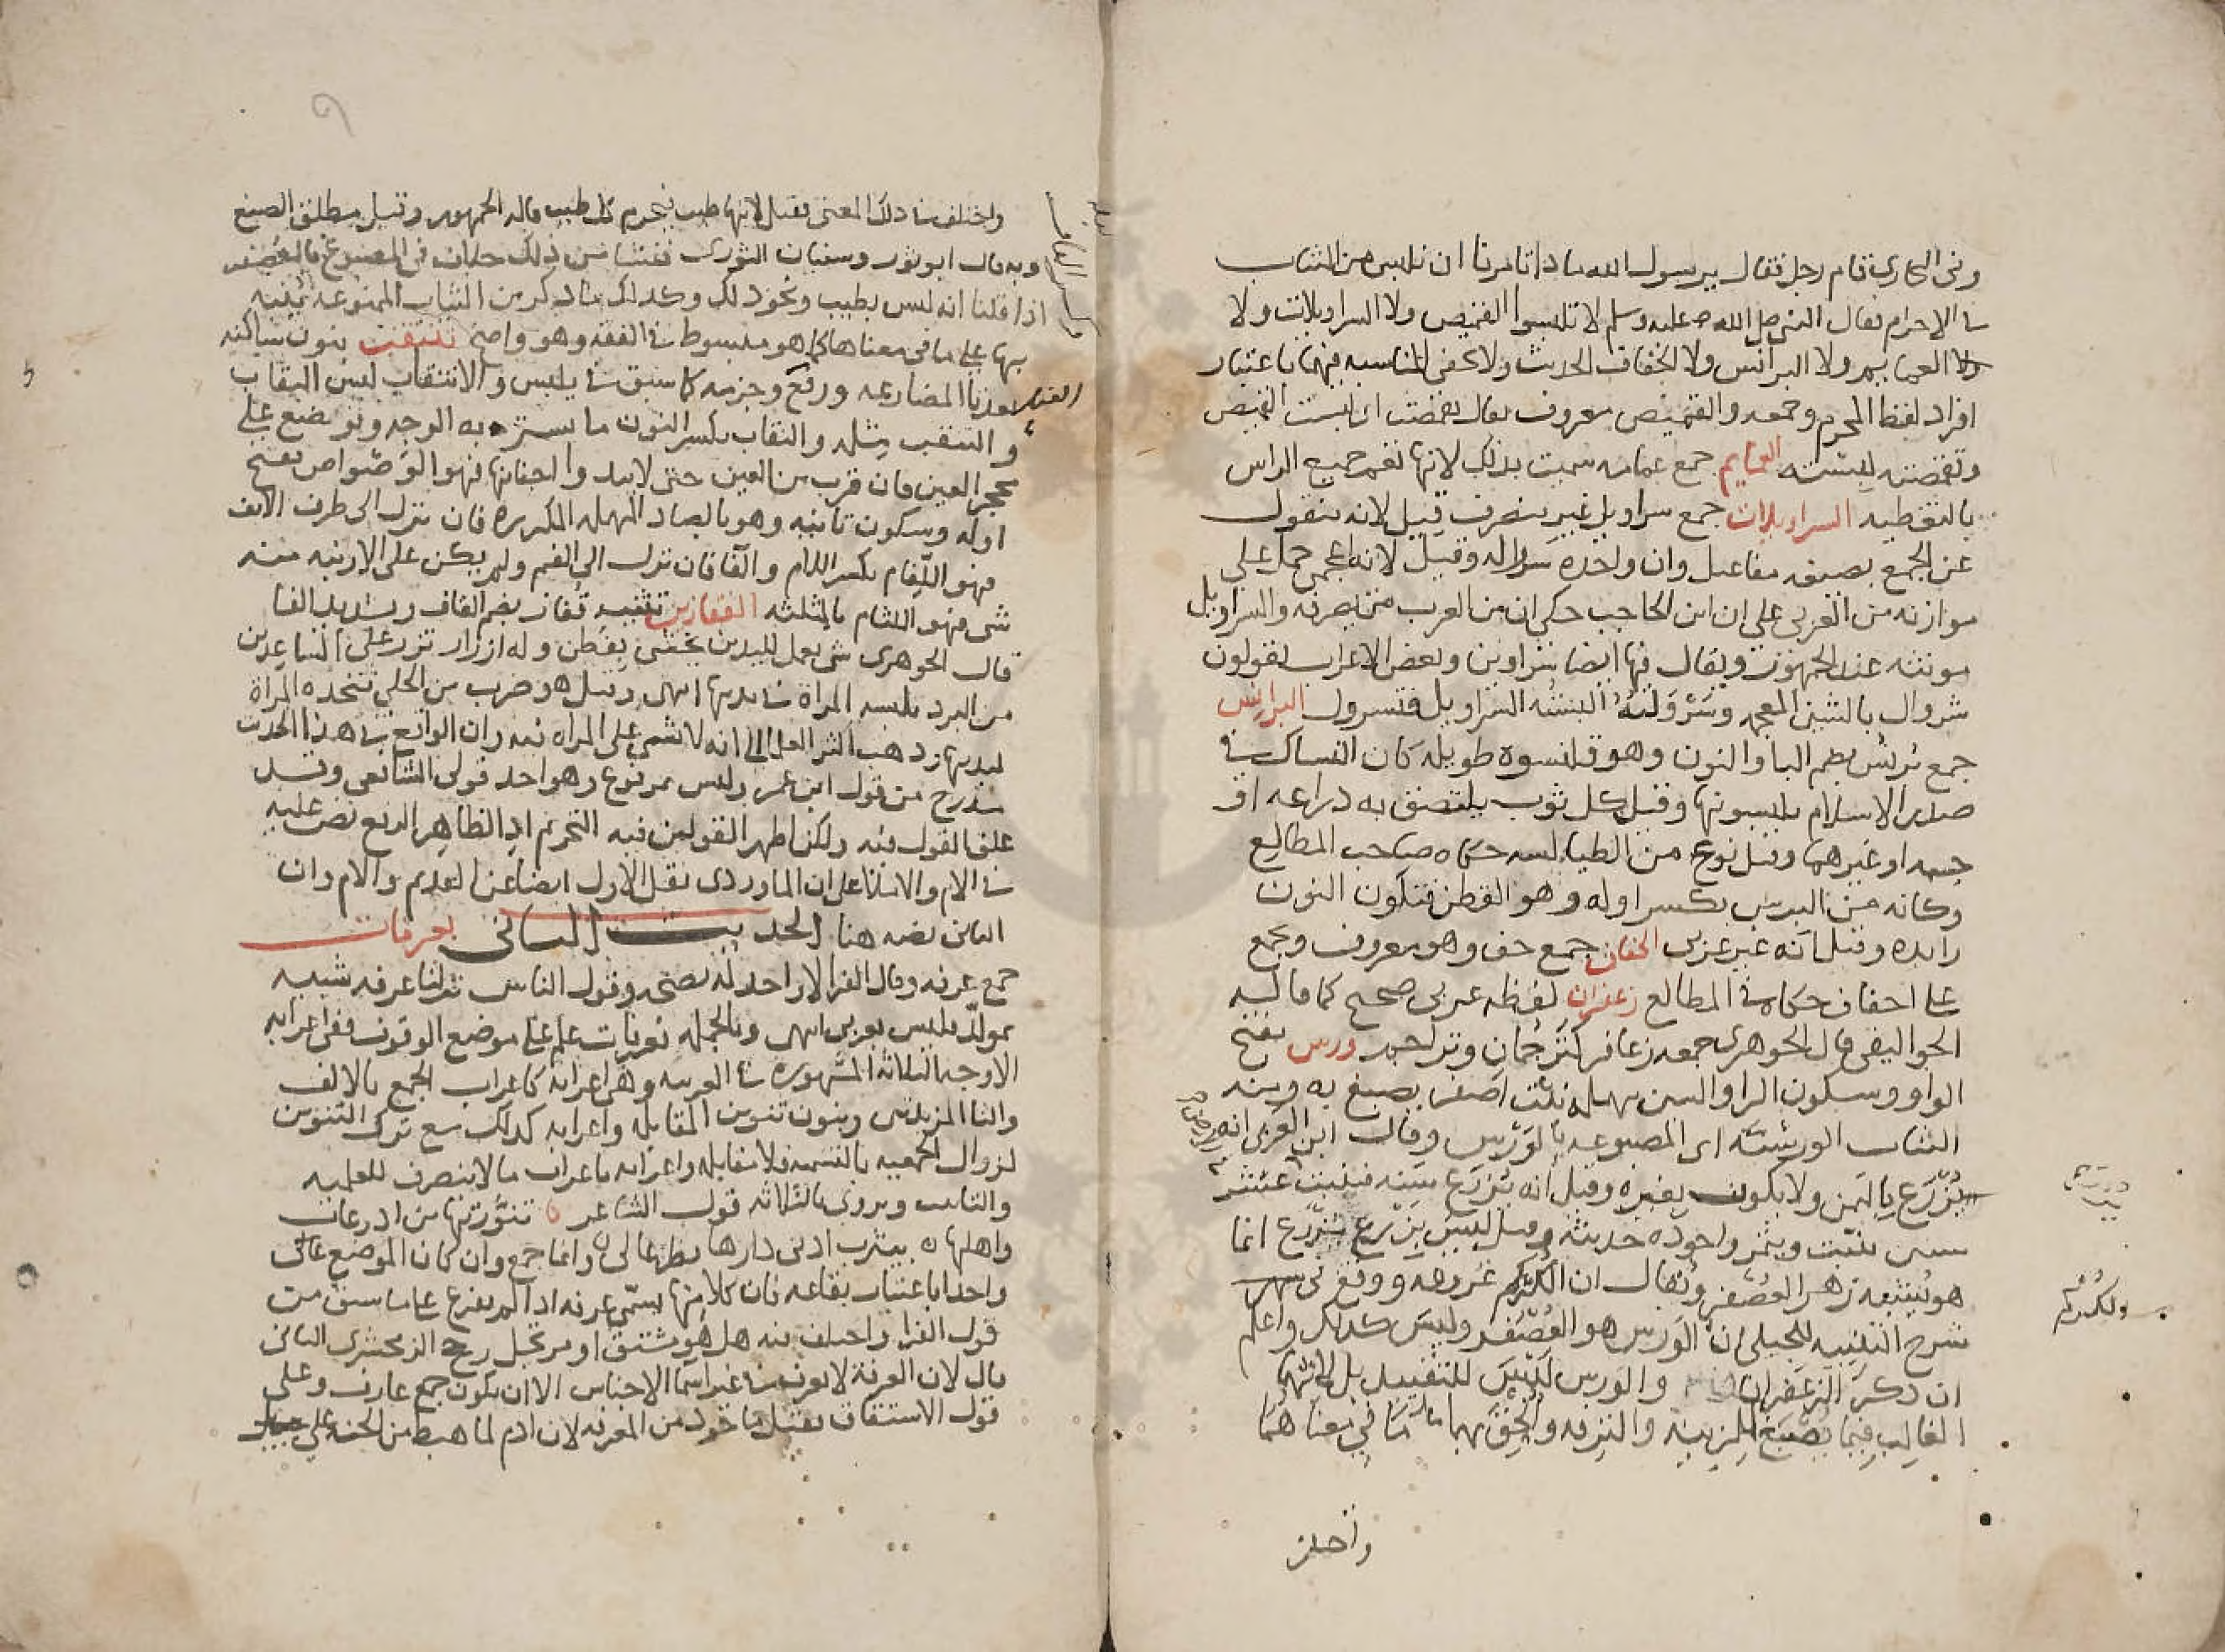 وفى البخارى قام رجل فقال يرسول الله ماذا تامرنا ان نلبس من الثياب
فى الاحرام فقال النبى صلى الله عليه وسلم لا تلبسوا القميص ولا السراويلات ولا
ولا العمايم ولا البرانس ولا الخفاف الحديث ولا تخفى المناسبه فيهما باعتبار
افراد لفظ المحرم وجمعه والقميص معروف يقال تقمصت اى لبست القميص
وتقمصته لبسته العمايم جمع عمامه سميت بذلك لانها تعم جميع الراس
بالتغطيه السراويلات جمع سراويل غير منصرف قيل لانه منقول
عن الجمع بصيغه مفاعيل وان واحده سرواله وقيل لانه اعجمى حمل على
موازنه من العربى على ان ابن الحاجب حكى ان من العرب من يصرفه والسراويل
مونثه عند الجمهور ويقال فيها ايضا سراوين وبعض الاعراب يقولون
شروال بالشين المعجمه وسرولته البسته السراويل فتسرول البرانس
جمع برنس بضم البا والنون وهو قلنسوه طويله كان النساك فى
صدر الاسلام يلبسونها وقيل كل ثوب يلتصق به دراعه او
جبه او غيرهما وقيل نوع من الطيالسه حكاه صاحب المطالع
وكانه من البرس بكسر اوله وهو القطن فتكون النون
زايده وقيل انه غير عربى الخفاف جمع خف وهو معروف ويجمع
على اخفاف حكاه فى المطالع زعفران لفظه عربى صحيح كما قاله
الجواليقى قال الجوهرى جمعه زعافر كترجمان وتراجم ورس بفتح
الواو وسكون الرا والسين مهمله نبت اصفر يصبغ به ومنه
الثياب الورسيه اى المصبوغه بالورس وقال ابن العربى انه
يزرع باليمن ولا يكون بغيره وقيل انه يزرع سنه فيثبت عشر
سنين ينبت ويثمر واجوده حديثه وقيل ليس يزرع يزرع انما
هو يشبه زهر العصفر ويقال ان الكركم عروقه ووقع فى
شرح التنبيه للجيلى ان الورس هو العصفر وليس كذلك واعلم
ان ذكر الزعفران والورس ليس للتقييد بل لانهما
الغالب فيما يصبغ للزينه والترفه والحق بهما ما فى معناهما
واختلف
ولكركم
واختلف فى ذلك المعنى فقيل لانها طيب فيحرم كل طيب قاله الجمهور وقيل مطلق الصبغ
وبه قال ابو ثور وسفيان الثورى فنشا من ذلك خلاف فى المصبوغ بالعصفر
اذا قلنا انه ليس بطيب ونحو ذلك وكذلك ما ذكر من الثياب الممنوعه تنبيه
بها على ما فى معناها كما هو مبسوط فى الفقه وهو واضح تنتقب بنون ساكنه
بعد تا المضارعه ورفع وجزمه كما سبق فى يلبس والانتقاب لبس النقاب
والتنقب مثله والنقاب بكسر النون ما يستر به الوجه ويوضع على
محجر العين فان قرب من العين حتى لا يبدوا اجفانها فهو الوصواص بفتح
اوله وسكون ثانيه وهو بالصاد المهمله المكرره فان نزل الى طرف الانف
فهو اللفام بكسر اللام والفا فان نزل الى الفم ولم يكن على الارنبه منه
شى فهو اللثام بالمثلثه القفازين تثنيه قفاز بضم القاف وتشديد الفا
قال الجوهرى شى يعمل لليدين يحشى بقطن وله ازرار تزر على الساعدين
من البرد تلبسه المراة فى يديها انتهى وقيل هو ضرب من الحلى تتخذه المراة
ليديها وذهب اكثر العلما الى انه لا شى على المراه فيه وان الواقع فى هذا الحديث
مندرج من قول ابن عمر وليس بمرفوع وهو احد قولى الشافعى وقيل
علق القول فيه ولكن اظهر القولين فيه التحريم اذ الظاهر الرفع نص عليه
فى الام والاملا على ان الماوردى نقل الاول ايضا عن القديم والام وان
الثانى نصه هنا الحديث الثانى بعرفات
جمع عرفه وقال الفرا لا واحد له بصحه وقول الناس نزلنا عرفه شبيه
بمولد وليس بعربى انتهى وبالجمله فعرفات علم على موضع الوقوف ففى اعرابه
الاوجه الثلاثه المشهوره فى العربيه وهى اعرابه كاعراب الجمع بالالف
والتا المزيدتين وينون تنوين المقابله واعرابه كذلك مع ترك التنوين
لزوال الجمعيه بالتسميه فلا مقابله واعرابه باعراب ما لا ينصرف للعلميه
والتانيث ويروى بالثلاثه قول الشاعر تنورتها من اذرعات
واهلها بيثرب ادنى دارها نظر عالى وانما جمع وان كان الموضع
واحدا باعتبار بقاعه فان كلا منها يسمى عرفه اذ لم يفرع على ما سبق من
قول الفرا واختلف فيه هل هو مشتق او مرتجل رجح الزمخشرى الثانى
قال لان العرفة لا تعرف فى غير اسما الاجناس الا ان يكون جمع عارف وعلى
قول الاشتقاق فقيل ماخوذ من المعرفه لان ادم لما هبط من الجنه على